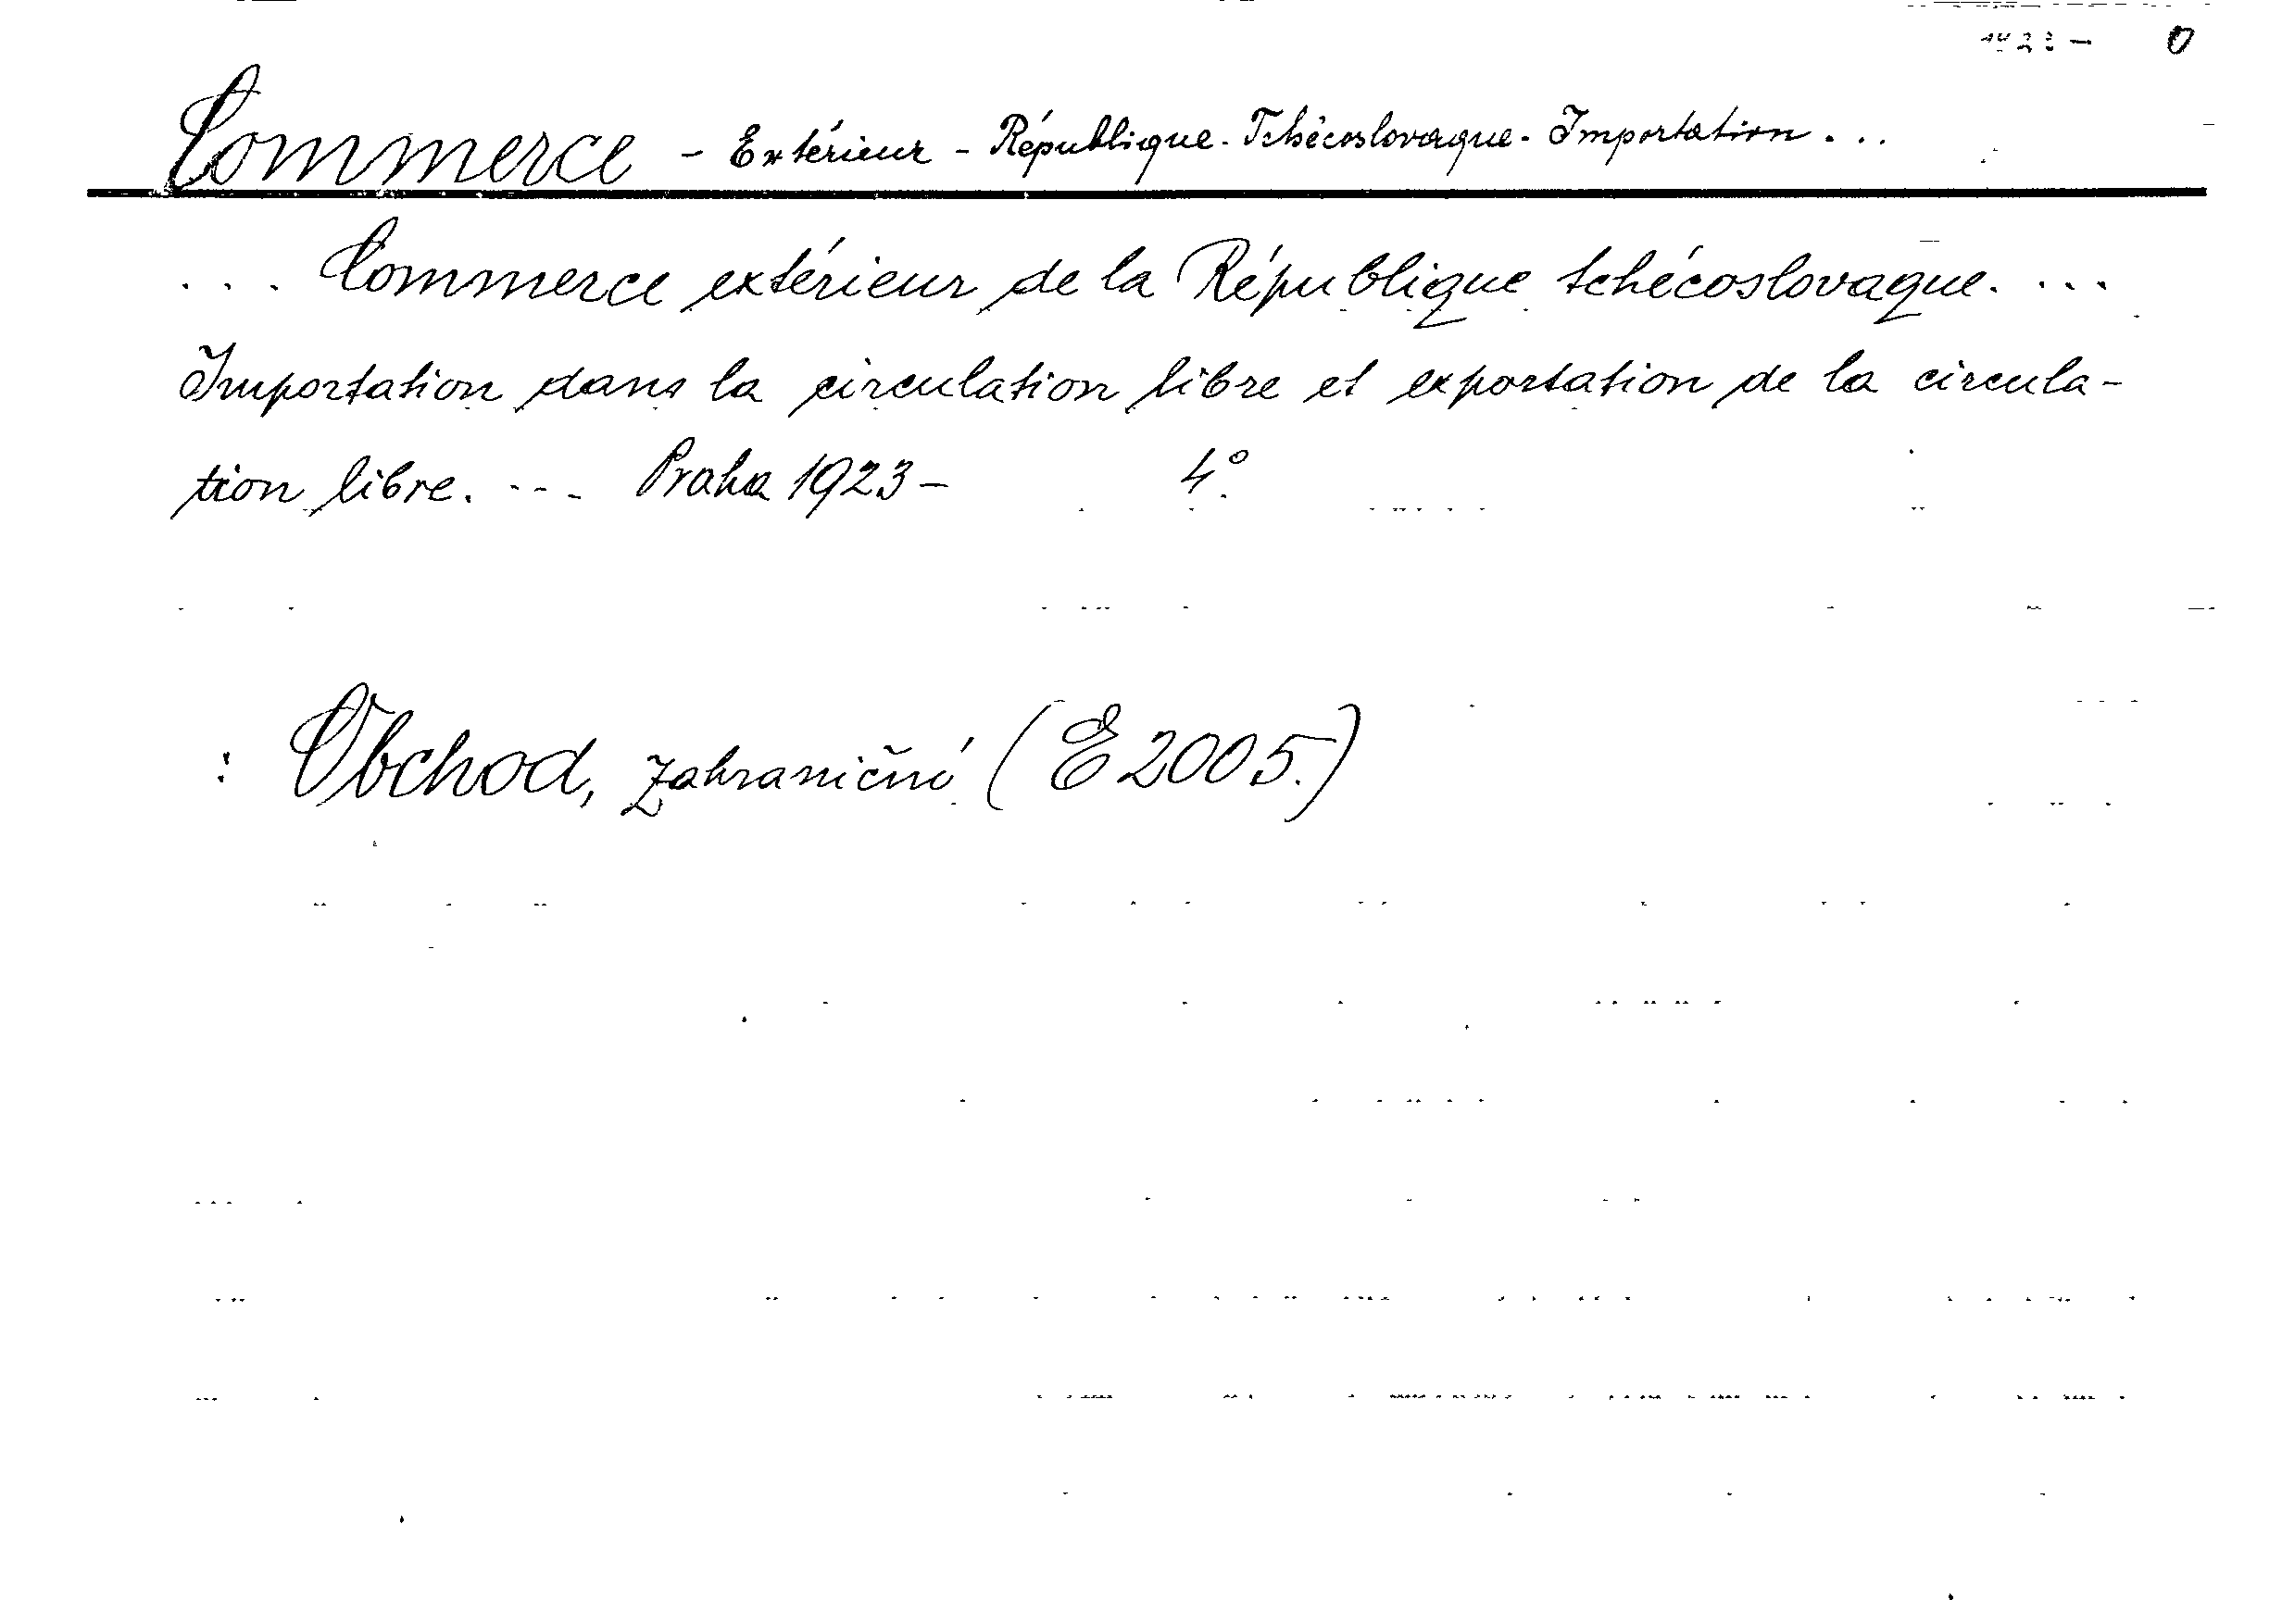 1923 - 0
Commerce - Extérieur - République - Tchécoslovaque - Importation . . .
. . . Commerce extérieur de la République tchécoslovaque. ...
Importation dans la circulation libre et exportation de la circula-
tion libre. --- Praha 1923 - 4°.
: Obchod, zahraničné (E 2005.)